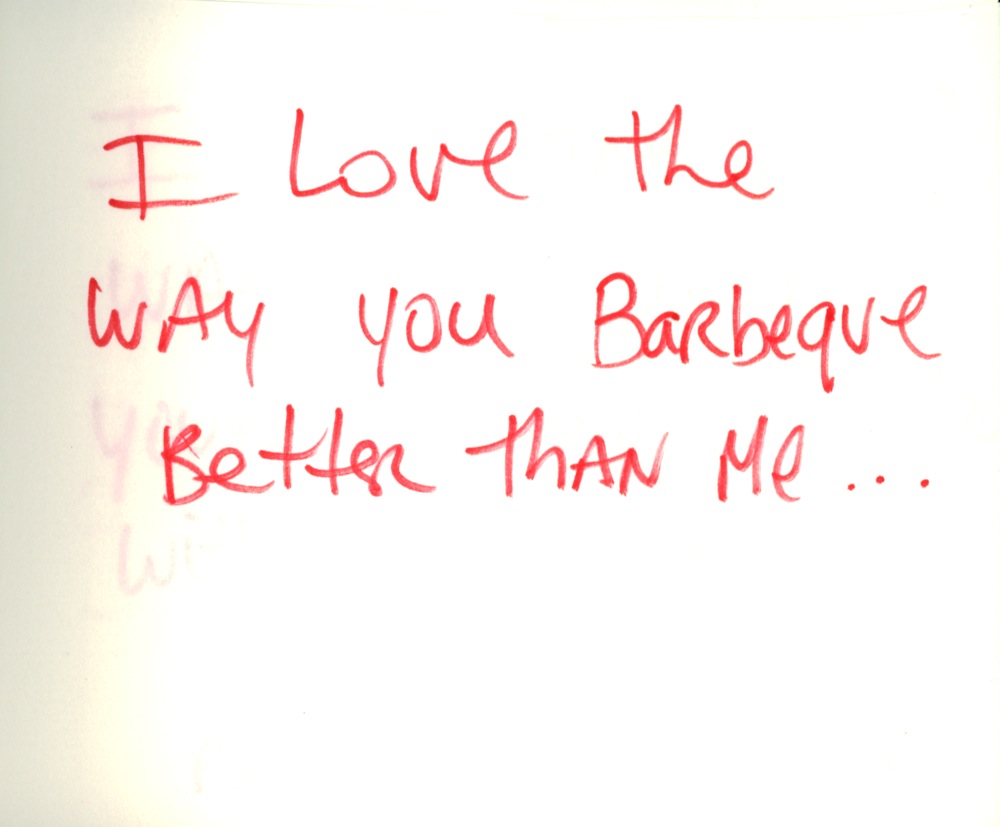 I Love the
WAY YOU Barbeque
Better thAN Me...